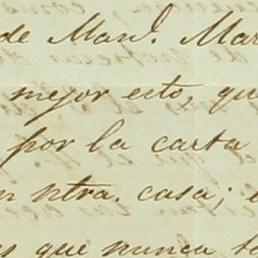 de Man.l Mar
mejor esto, qu
por la carta
ntra. casa; e
que nunca